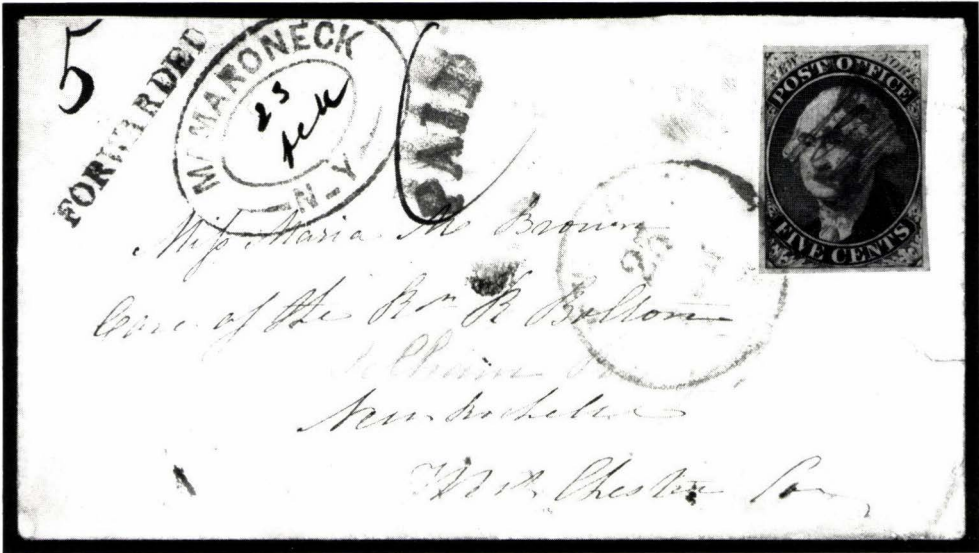 5
FORWARDED
MAMARONECK
23
N-Y
PAID
NEW YORK
POST OFFICE
FIVE CENTS
23
Miss Maria M Brown
Care of the Rev R Bolton
Pelham
New Rochelle
West Chester Co